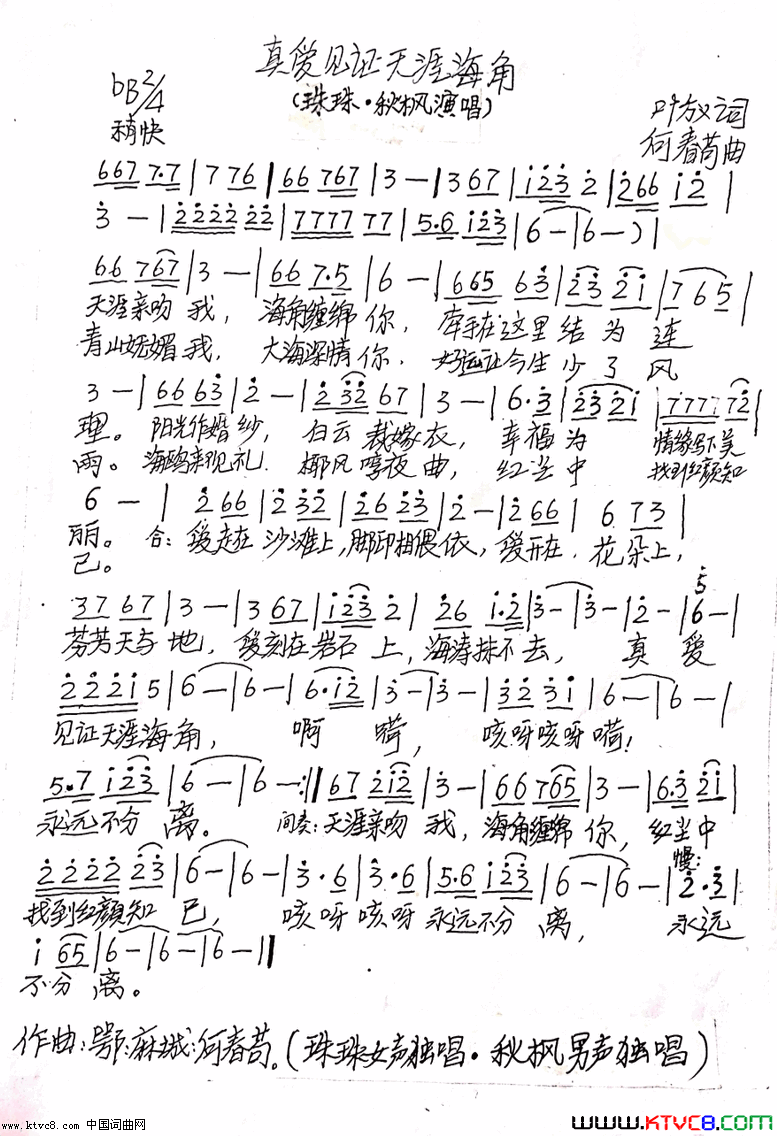 真爱见证天涯海角
(珠珠·秋枫演唱)
bB 2/4
稍快
叶放义词
何春苟曲
667 7·7 | 7 76 | 66 767 | 3 — | 3 67 | i̇2̇3̇ 2̇ | 2̇66 i̇2̇ |
3̇ — | 2̇2̇2̇2̇ 2̇2̇ | 7777 77 | 5·6 i̇2̇3̇ | 6 — | 6 — ) |
66 767 | 3 — | 66 7·5 | 6 — | 665 63̇ | 2̇3̇ 2̇i̇ | 7 6 5 |
天涯亲吻我，海角缠绵你，牵手在这里结为连
青山妩媚我，大海深情你，好运让今生少了风
3 — | 66 63̇ | 2̇ — | 2̇ 3̇2̇ 67 | 3 — | 6·3̇ | 2̇3̇ 2̇i̇ | 7777 72̇ |
理。阳光作婚纱，白云裁嫁衣，幸福为情缘写下美
雨。海鸥亲观礼．椰风哼夜曲，红尘中找到红颜知
6 — | 2̇ 66 | 2̇ 3̇2̇ | 2̇6 2̇3̇ | 2̇ — | 2̇66 | 6 73 |
丽。合：爱走在沙滩上，脚印相偎依，爱开在．花朵上，
己。
37 67 | 3 — | 3 67 | i̇2̇3̇ 2̇ | 2̇6 i̇·2̇ | 3̇ — | 3̇ — | 2̇ — | 6 — |
5̇
芬芳天与地，爱刻在岩石上，海涛抹不去，真爱
2̇2̇2̇i̇ 5 | 6 — | 6 — | 6·i̇2̇ | 3̇ — | 3̇ — | 3̇2̇ 3̇i̇ | 6 — | 6 — |
见证天涯海角，啊嗬，咳呀咳呀嗬！
5·7 i̇2̇3̇ | 6 — | 6 — :‖ 67 2̇i̇2̇ | 3̇ — | 66 765 | 3 — | 6·3̇ 2̇i̇ |
永远不分离。间奏：天涯亲吻我，海角缠绵你，红尘中
2̇2̇2̇2̇ 2̇3̇ | 6 — | 6 — | 3̇·6 | 3̇·6 | 5·6 i̇2̇3̇ | 6 — | 6 — | 2̇·3̇ |
慢：
找到红颜知己，咳呀咳呀永远不分离，永远
i̇ 65 | 6 — | 6 — | 6 — ‖
不分离。
作曲：鄂：麻城：何春苟。(珠珠女声独唱·秋枫男声独唱)
www.ktvc8.com 中国词曲网
www.KTVC8.com